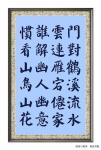 門對鶴溪流水
雲連雁宕僊家
誰解幽人幽意
慣看山鳥山花